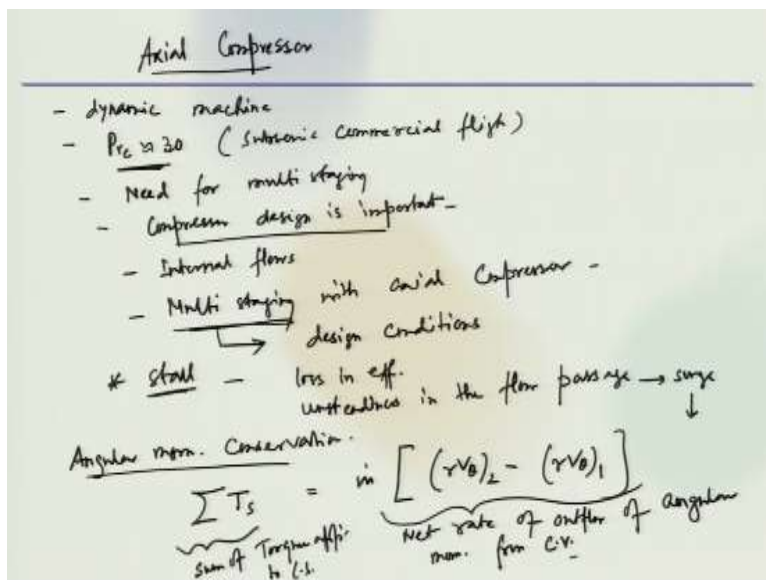 Axial Compressor
- dynamic machine
- Prc ≈ 30 (Subsonic Commercial fligh)
- Need for multi staging
- Compressor design is important -
- Internal flows
- Multi staging with axial Compressor -
design conditions
* stall - loss in eff.
unsteadiness in the flow passage → surge
↓
Angular mom. Conservation.
∑ Ts = ṁ [ (rVθ)2 - (rVθ)1 ]
sum of Torque
to C.S.
Net rate of outflow of angular
mom. from C.V.